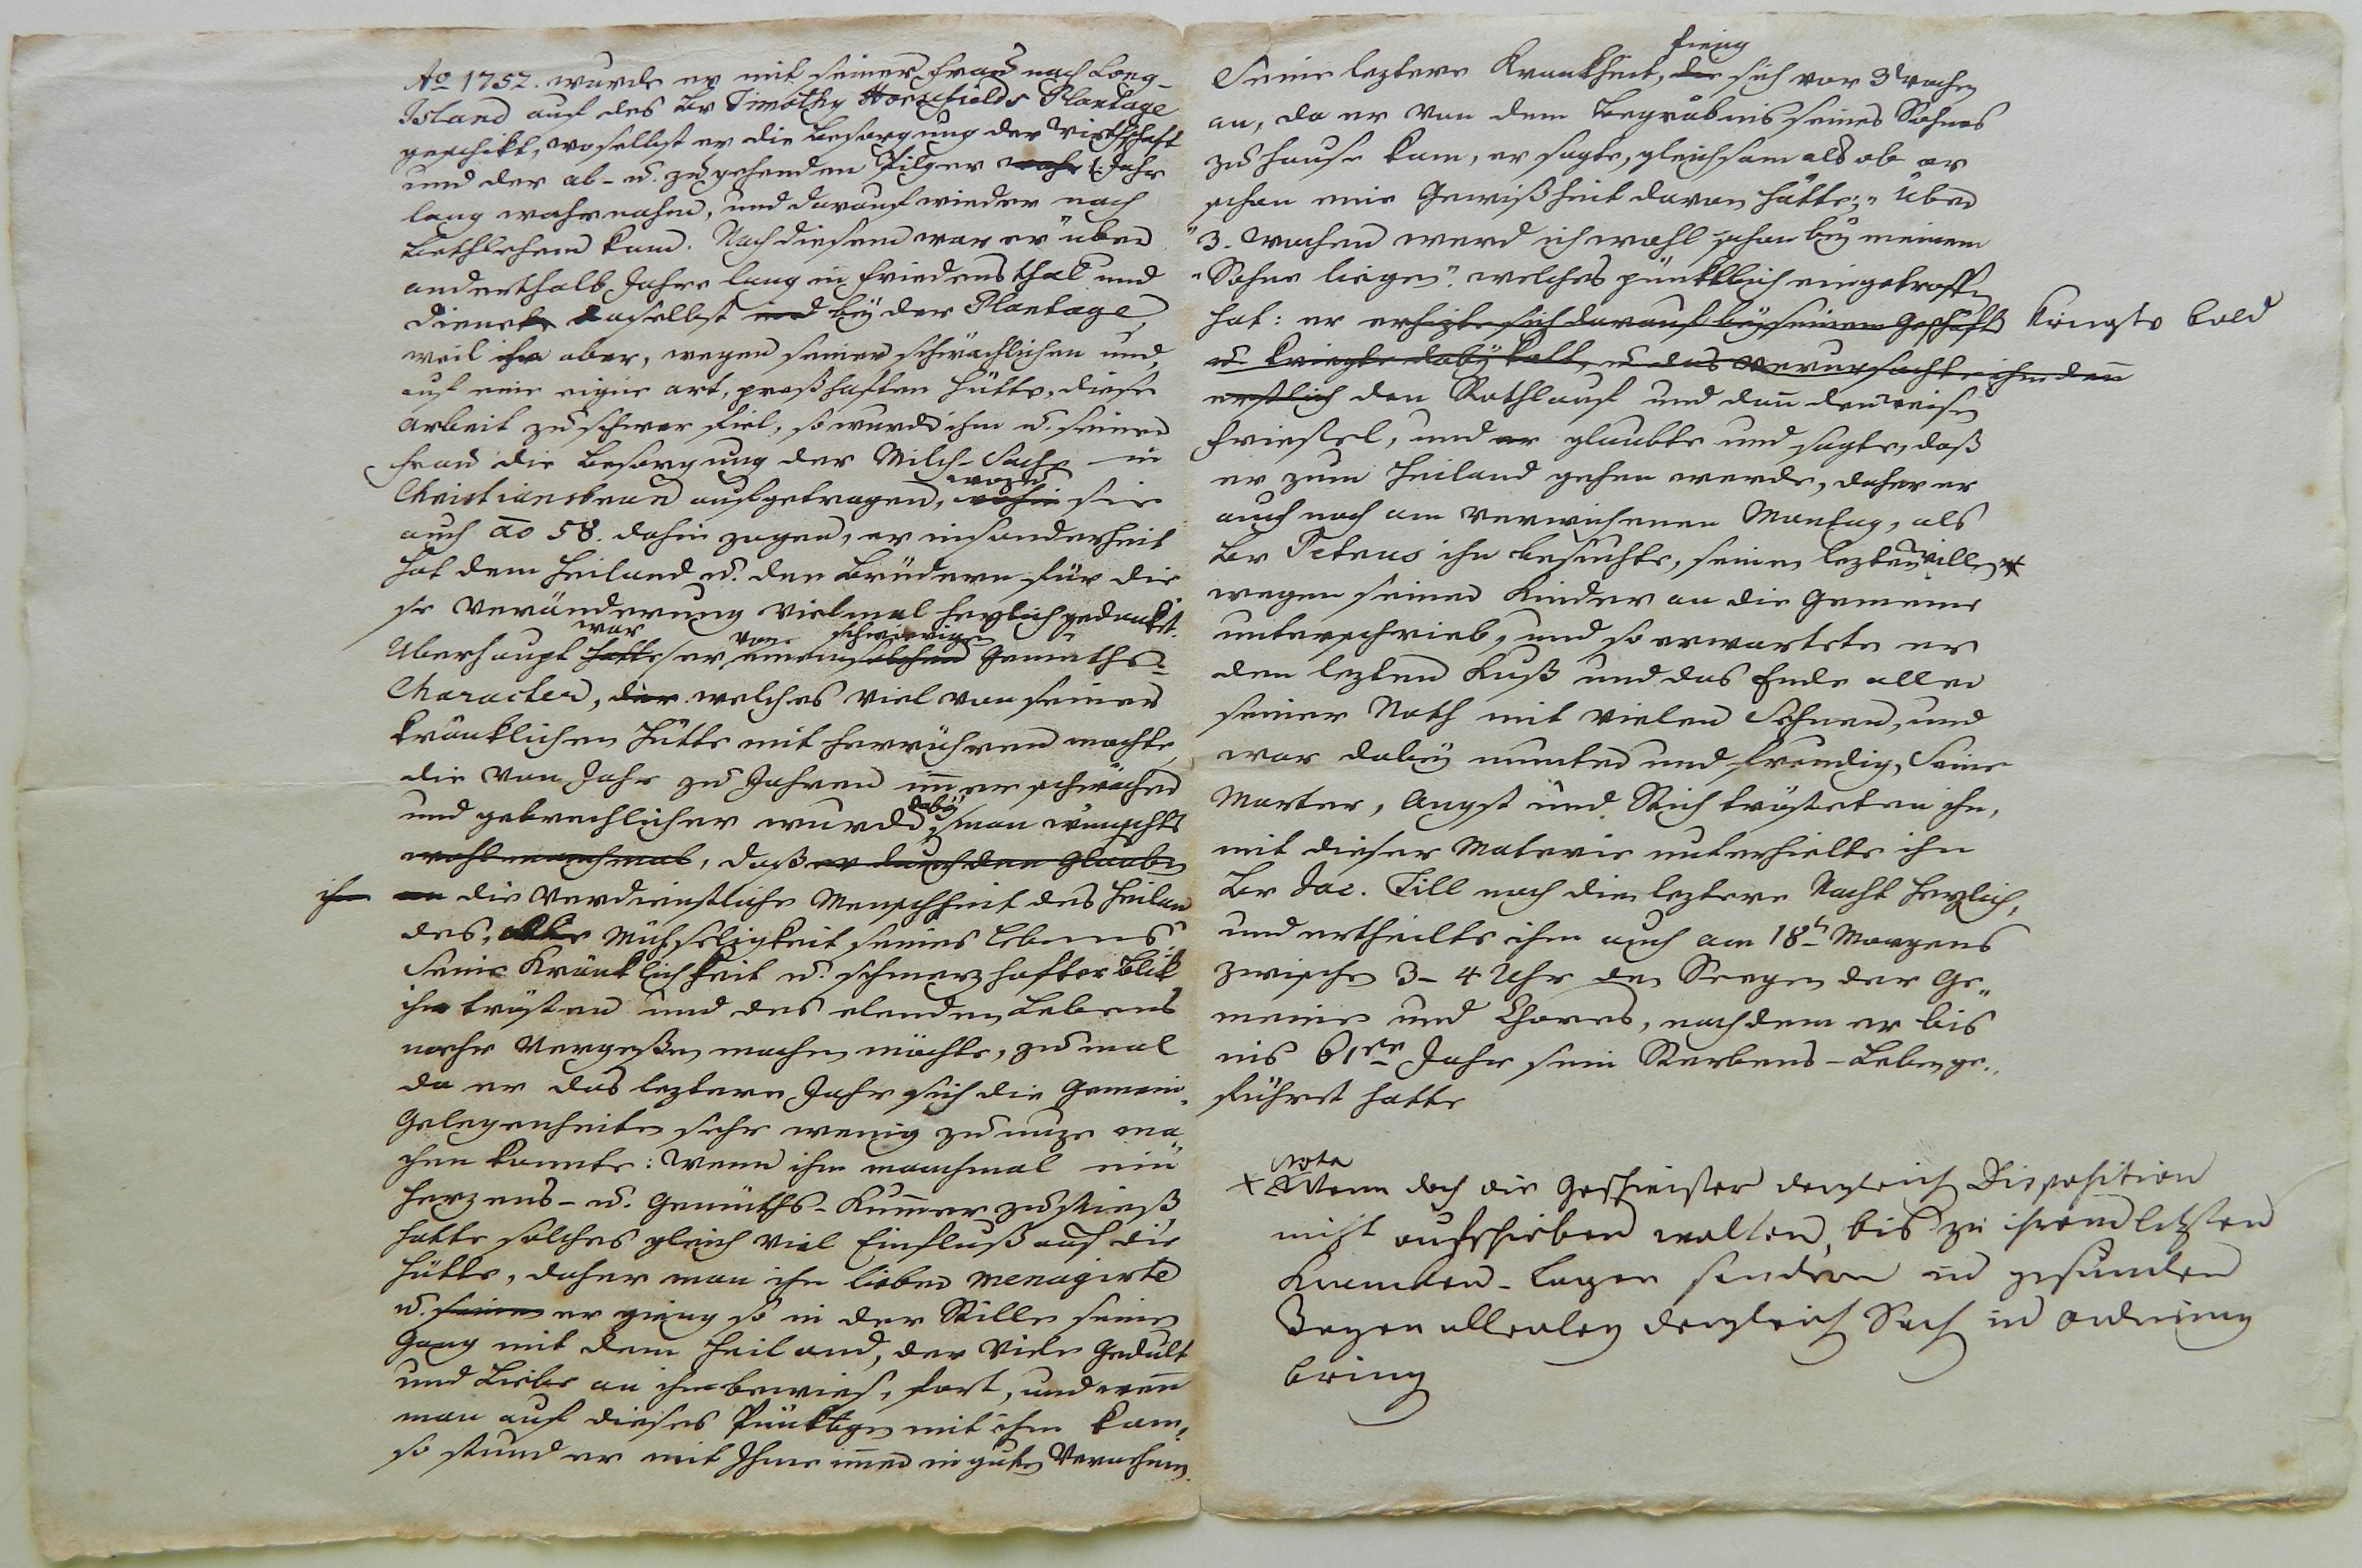 Ao 1752. wurde er mit seiner Frau nach Long-
Island auf des Br Timothy Horsefields Plantage
geschikt, woselbst er die Besorgung der Wirthschaft
und der ab- u. zugehenden Pilger 1. Jahr
lang wahrnahm, und darauf wieder nach
Bethlehem kam. Nach diesem war er über
anderthalb Jahre lang in Friedensthal und
diente daselbst bey der Plantage,
weil ihm aber, wegen seiner schwächlichen und,
auf eine eigne art, presshaften Hütte, diese
Arbeit zu schwer fiel, so wurde ihm u. seiner
Frau die Besorgung der Milch-Sache in
Christiansbrun aufgetragen, wozu sie
auch ao 58. dahin zogen, er insonderheit
hat dem Heiland u. den Brüdern für die
se Veränderung vielmal herzlich gedankt.
Uberhaupt war er von schwierigen Gemüths-
Character, welches viel von seiner
kränklichen Hütte mit herrühren mochte,
die von Jahr zu Jahren immer schwächer
und gebrechlicher wurde, dabey man wünschte
wohl manchmal, daß er durch den Glauben
ihn an die verdienstliche Menschheit des Heilan
des, Mühseligkeit seines Lebens
seine Kränklichkeit u. schmerzhafter Blik
ihn trösten und des elenden Lebens
mehr vergeßen machen möchte, zumal
da er das leztere Jahr sich die Gemein-
Gelegenheiten sehr wenig zu nuze ma-
chen konnte: wenn ihm manchmal ein
Herzens- u. Gemüths-Kummer zustieß,
hatte solches gleich viel Einfluß auf die
Hütte, daher man ihn lieber menagirte
u. er gieng so in der Stille seinen
Gang mit dem Heiland, der viele Gedult
und Liebe an ihm bewies, fort, und wenn
man auf dieses Pünktgen mit ihm kam,
so stund er mit Ihme immer in guten Vernehmen.
Seine leztere Krankheit, fieng sich vor 3 Wochen
an, da er von dem Begräbnis seines Sohnes
zu Hause kam, er sagte, gleichsam als ob er
schon eine Gewißheit davon hätte: „Über
„3. Wochen werd ich wohl schon bey meinem
„Sohne liegen". welches pünktlich eingetroffen
hat: er erhizte sich darauf bey seinem Geschäfte kriegte bald
u. kriegte dabey kalt, u. das verursachte ihm denn
erstlich den Rothlauf und dann den weisen
Friesel, und er glaubte und sagte, daß
er zum Heiland gehen werde, daher er
auch noch am verwichenen Montag, als
Br Petrus ihn besuchte, seinen lezten Willen
wegen seiner Kinder an die Gemeine
unterschrieb, und so erwartete er
den lezten Kuß und das Ende aller
seiner Noth mit vielen Sehnen, und
war dabey munter und freudig, Seine
Marter, Angst und Stich trösteten ihn,
mit dieser Materie unterhielte ihn
Br Jac. Till noch die leztere Nacht herzlich,
und ertheilte ihm auch am 18t Morgens
zwischen 3-4 Uhr den Seegen der Ge-
meine und Chores, nachdem er bis
ins 61ste Jahr sein Sterbens-Leben ge-
führet hatte
Nota
x Wenn doch die Geschwister dergleich Disposition
nicht aufschieben wolten, bis zu ihrem letzten
Krancken-Lager sondern in gesunden
Tagen allerley dergleich Sach in ordnung
bring